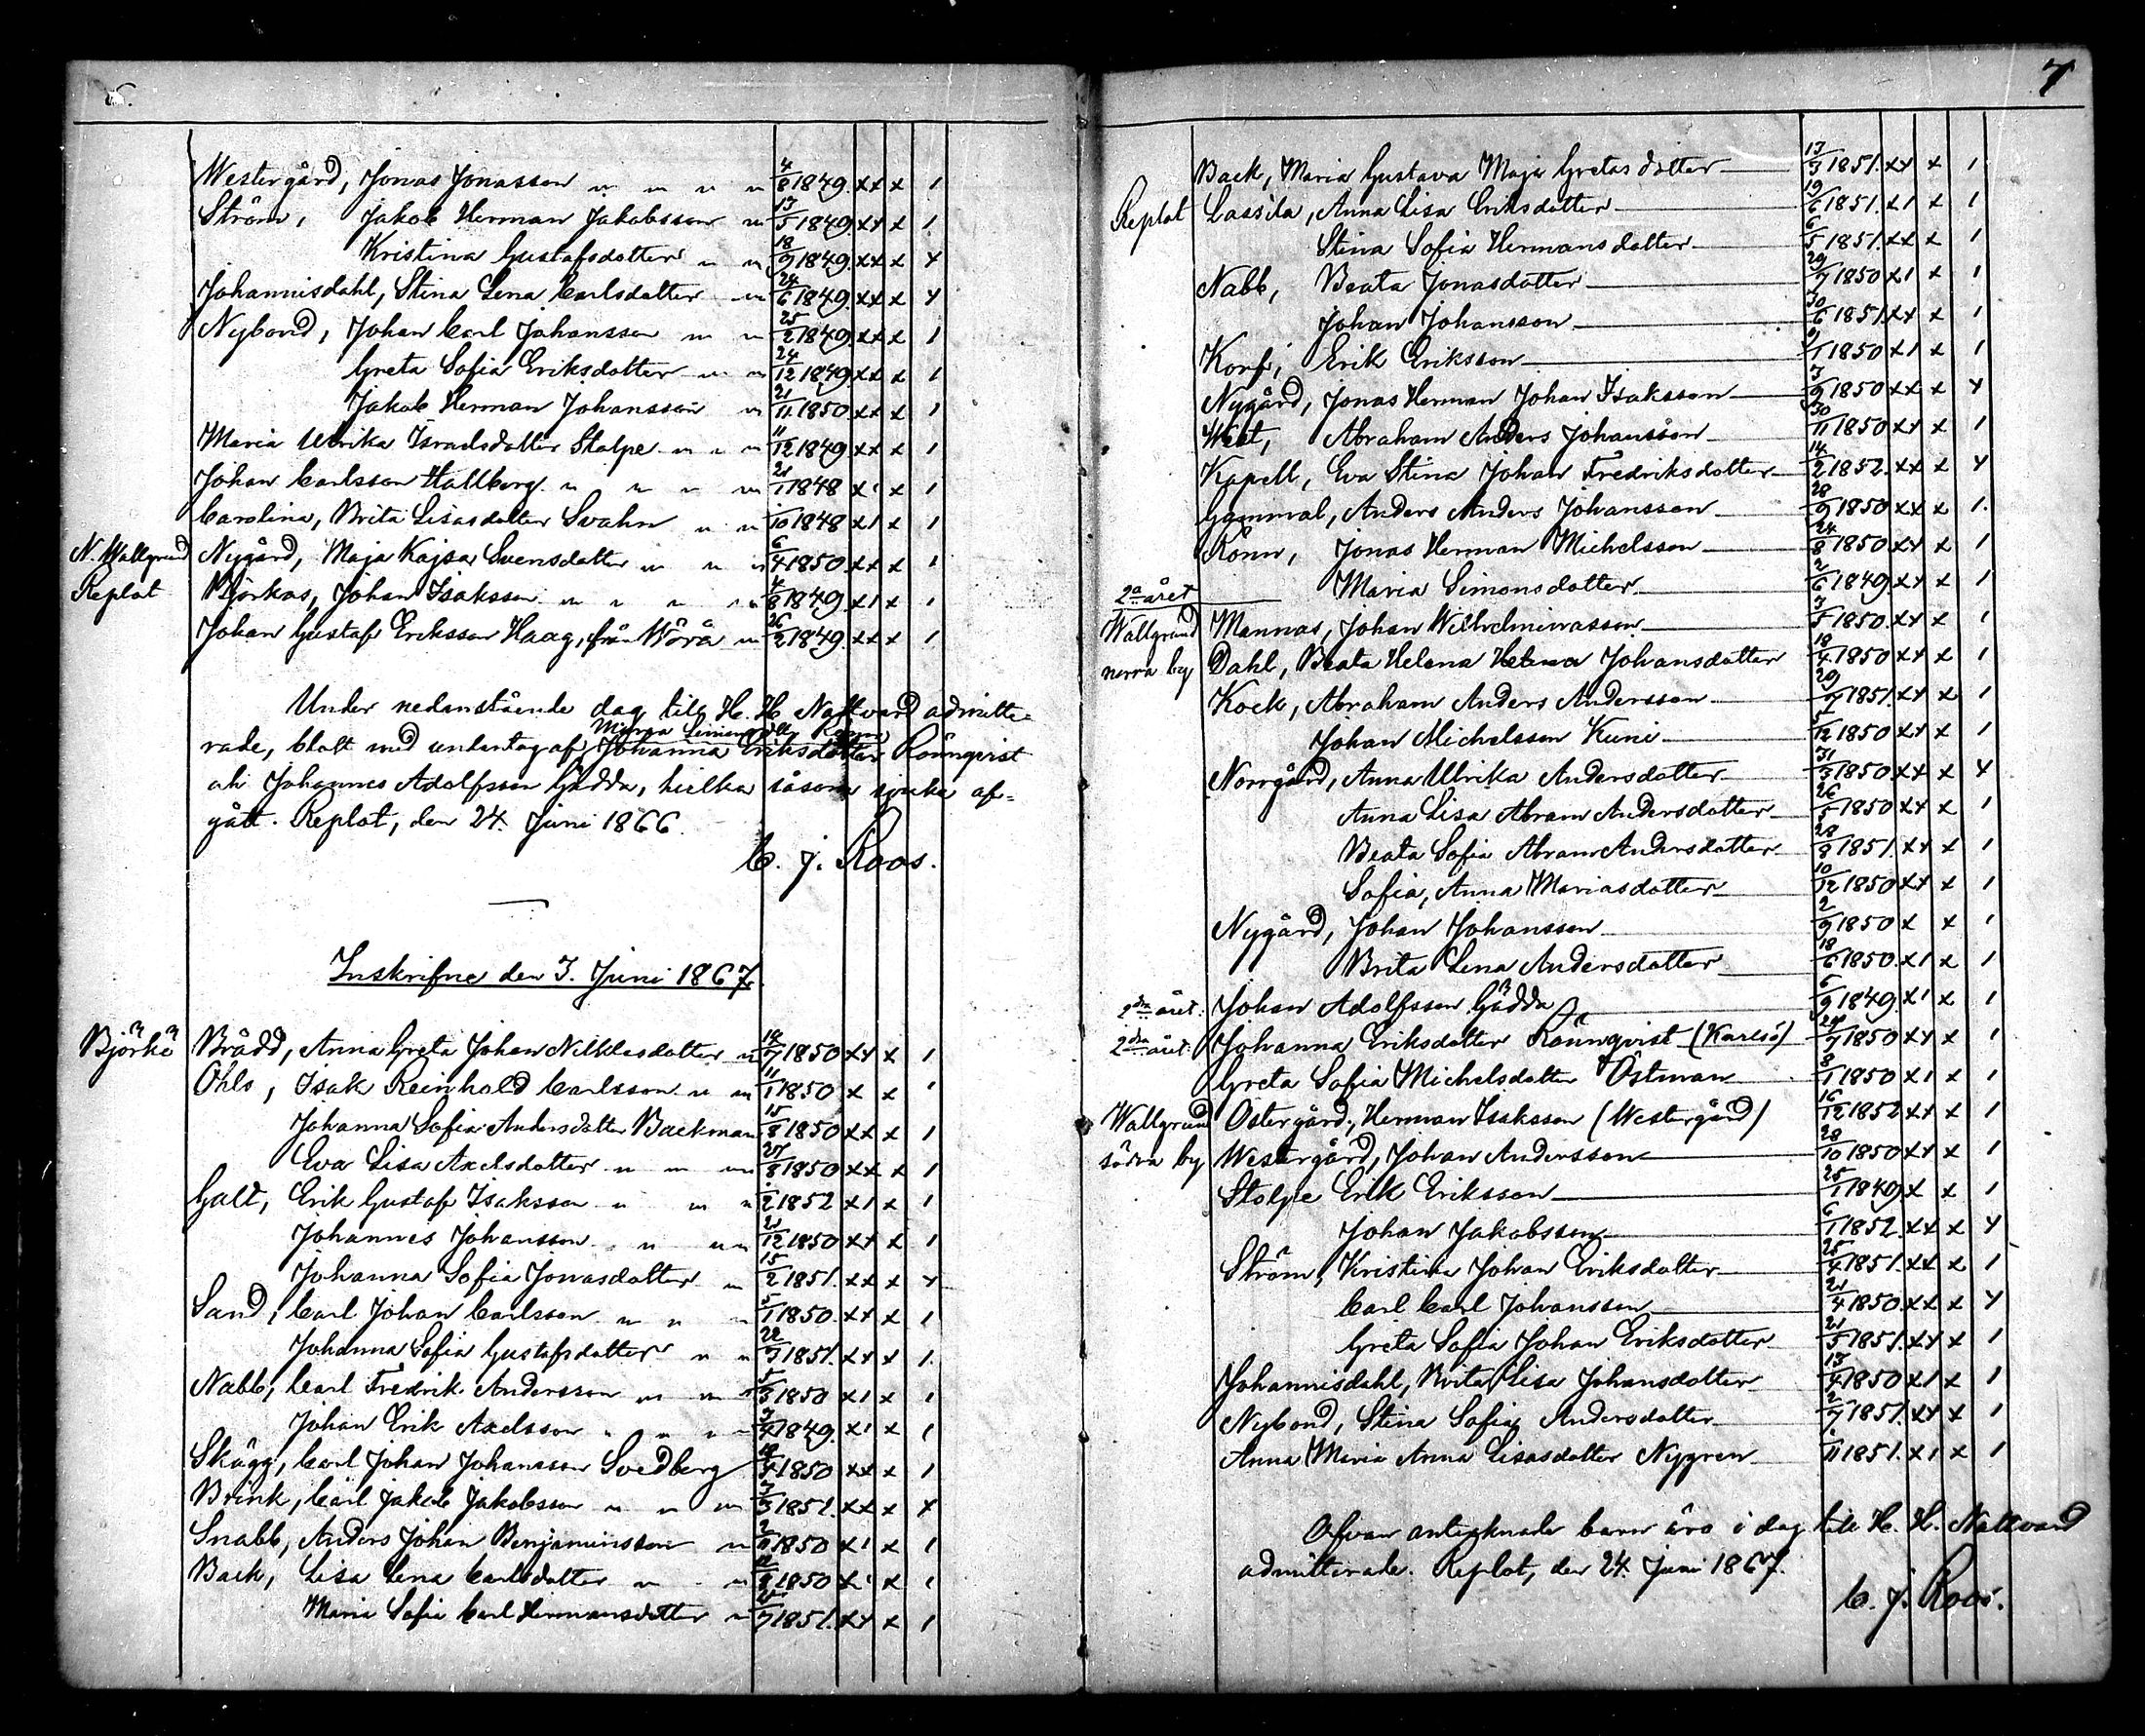 6.
Westergård, Jonas Jonasson " " " " 4/8 1849. xx x 1
Ström, Jakob Herman Jakobsson " 13/5 1849 xx x 1.
Kristina Gustafsdotter " " 18/9 1849. xx x x
Johannisdahl, Stina Lena Carlsdotter " 24/6 1849. xx x x
Nybond, Johan Carl Johansson " " 25/2 1849. xx x 1
Greta Sofia Eriksdotter " " 24/12 1849 xx x 1
Jakob Herman Johansson " 21/11 1850 xx x 1
Maria Ulrika Israelsdotter Stolpe " " " 11/12 1849. xx x 1
Johan Carlsson Hallberg " " " " 21/1 1848 x 1 x 1
Carolina, Brita Lisasdotter Svahn " " /10 1848 x1 x 1
N. Wallgrund Nygård, Maja Kajsa Svensdotter " " " 6/4 1850. xx x 1
Replot Björkas, Johan Isaksson " " " " 4/8 1849. x1 x 1
Johan Gustaf Eriksson Haag, från Wörå " 26/2 1849. xx x 1
Under nedanstående dag till H. H. Nattvard admitte-
Maria Simonsdtr Rönn
rade, blott med undantag af Johanna Eriksdotter Rönnqvist
och Johannes Adolfsson Gädda, hvilka såsom sjuka af-
gått. Replot, den 24. Juni 1866.
C. J. Roos.
Inskrifne den 3. Juni 1867.
Björkö Brådd, Anna Greta Johan Nilklasdotter " 14/7 1850 xx x 1
Öhls, Isak Reinhold Carlsson " " 11/1 1850 x x 1
Johanna Sofia Andersdotter Backman 15/8 1850 xx x 1
Eva Lisa Axelsdotter " " " 27/8 1850 xx x 1
Galt, Erik Gustaf Isaksson " " " /2 1852 x1 x 1
Johannes Johansson " " " 21/12 1850 xx x 1
Johanna Sofia Jonasdotter " 15/2 1851. xx x x
Sand, Carl Johan Carlsson " " " 5/1 1850. xx x 1
Johanna Sofia Gustafsdotter " " 22/3 1851. xx x 1.
Nabb, Carl Fredrik Andersson " " " 5/3 1850 x1 x 1
Johan Erik Axelsson " " " " 3/4 1849. x1 x 1
Skägg, Carl Johan Johansson Svedberg 1850 xx x 1
Brink, Carl Jakob Jakobsson " " " 3/3 1852. xx x x
Snabb, Anders Johan Benjaminsson " 1850 x1 x 1
Back, Lisa Lena Carlsdotter " " " 1850 x1 x 1
Maria Sofia Carl Hermansdotter " 25/7 1851. xx x 1
7
Back, Maria Gustava Maja Gretas dotter 13/3 1851. xx x 1
Replot Lassila, Anna Lisa Eriksdotter 19/6 1851. x1 x 1
Stina Sofia Hermansdotter 6/5 1851. xx x 1
Nabb, Beata Jonasdotter 29/7 1850 x1 x 1
Johan Johansson 30/6 1851. xx x 1
Korf, Erik Eriksson 9/1 1850 x1 x 1
Nygård, Jonas Herman Johan Isaksson 3/9 1850 xx x x
West, Abraham Anders Johansson 30/11 1850 xx x 1
Kapell, Eva Stina Johan Fredriksdotter 14/2 1852. xx x x
Gammal, Anders Anders Johansson 28/9 1850 xx x 1.
Rönn, Jonas Herman Michelsson 24/8 1850 xx x 1
2a året Maria Simonsdotter 2/6 1849 xx x 1
Wallgrund Mannas, Johan Wilhelminasson 3/5 1850. xx x 1
norra by Dahl, Beata Helena Helena Johansdotter 18/4 1850 xx x 1
Kock, Abraham Anders Andersson 29/7 1851. xx x 1
Johan Michelsson Kuni 5/12 1850 xx x 1
Norrgård, Anna Ulrika Andersdotter 31/3 1850. xx x x
Anna Lisa Abram Andersdotter 26/5 1850 xx x 1
Beata Sofia Abram Andersdotter 28/8 1851. xx x 1
Sofia, Anna Mariasdotter 10/12 1850 xx x 1
Nygård, Johan Johansson 2/9 1850 x x 1
Brita Lena Andersdotter 18/6 1850. x1 x 1
2dra året: Johan Adolfsson Gädda 6/9 1849. x1 x 1
2dra året: Johanna Eriksdotter Rönnqvist (Karlsö) 24/7 1850 xx x 1
Greta Sofia Michelsdotter Östman 8/1 1850 x1 x 1
Wallgrund Östergård, Herman Isaksson (Westergård) 16/12 1852 xx x 1
södra by Westergård, Johan Andersson 28/10 1850 xx x 1
Stolpe Erik Eriksson 25/1 1849 x x 1
Johan Jakobsson 6/1 1852. xx x x
Ström, Kristina Johan Eriksdotter 25/4 1851. xx x 1
Carl Carl Johansson 21/4 1850. xx x x
Greta Sofia Johan Eriksdotter 21/5 1851. xx x 1
Johannisdahl, Brita Lisa Johansdotter 13/4 1850 x1 x 1
Nybond, Stina Sofia Andersdotter 2/7 1851. xx x 1
Anna Maria Anna Lisasdotter Nygren /11 1851. x1 x 1
Ofvan antecknade barn äro i dag till H. H. Nattvard
admitterade. Replot, den 24. Juni 1867.
C. J. Roos.